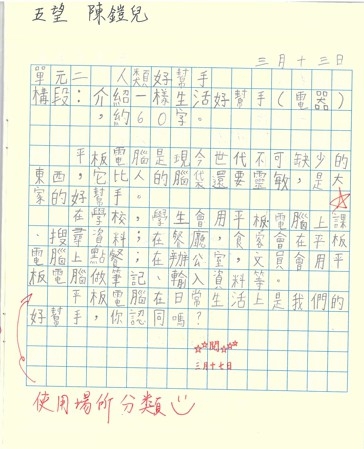 五望 陳鎧兒
三月十三日
單元二 人類好幫手
構段:介紹一樣生活好幫手(電器)
,約60字。
平板電腦是現今世代不可缺少的
東西,它比人的腦袋還要靈敏,是大
家的好幫手。
在學校,學生會用平板電腦上課
、搜集資料;在餐廳,食客會在平板
電腦上點餐;在辦公室,文員會用平
板電腦做筆記、輸入資料等。
平板電腦在日常生活上是我們的
好幫手,你認同嗎?
閱
三月十七日
使用場所分類